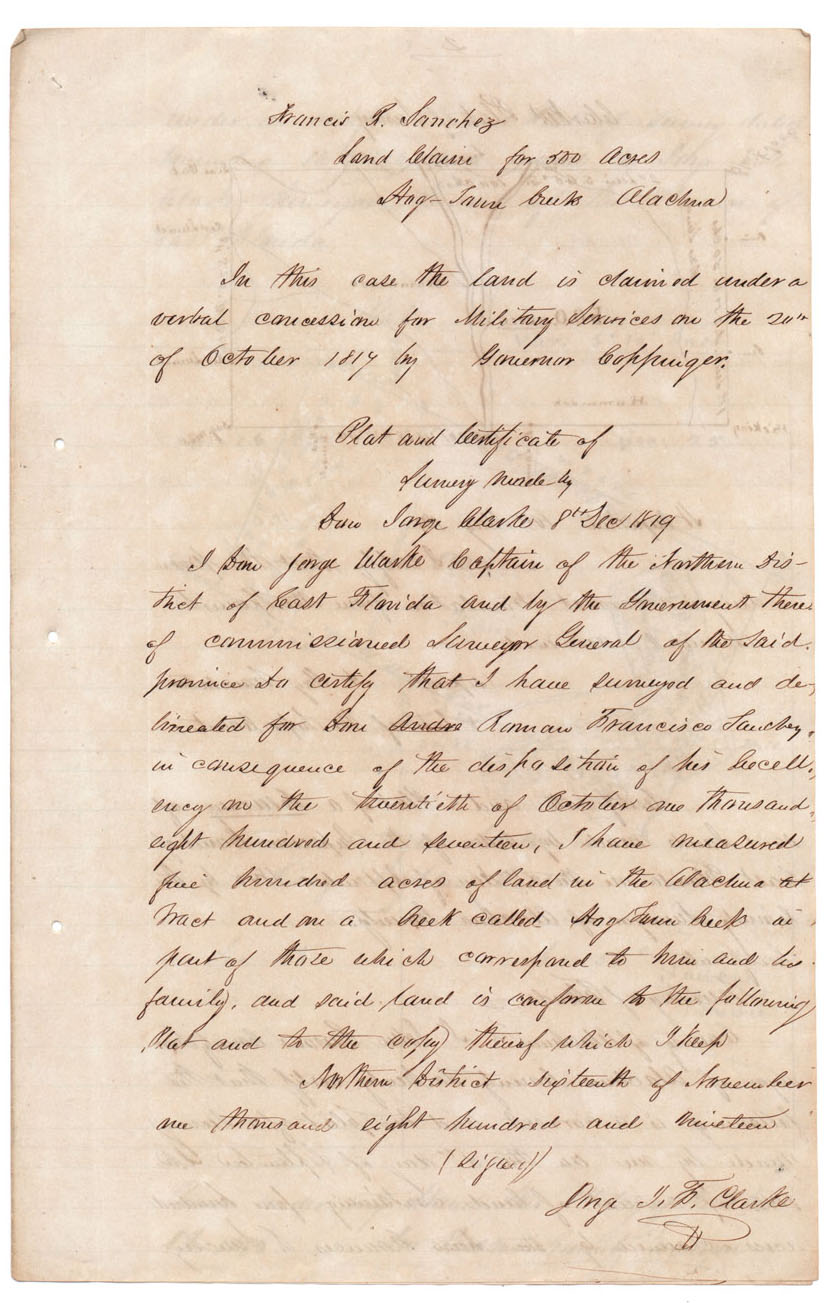 Francis R. Sanchez
Land Claim for 500 Acres
Hog-Town Creek Alachua
In this case the land is claimed under a
verbal concession for Military Services on the 20th
of October 1817 by Governor Coppinger.
Plat and Certificate of
Survey made by
Don Jorge Clarke 8th Dec 1819
I Don Jorge Clarke Captain of the Northern Dis-
trict of East Florida and by the Government there
of commissioned Surveyor General of the said
province Do certify that I have surveyed and de-
lineated for Don Andre Roman Francisco Sanchez,
in consequence of the disposition of his Excell-
ency on the twentieth of October one thousand
eight hundred and seventeen, I have measured
five hundred acres of land in the Alachua at
Tract and on a Creek called Hog Town Creek in
part of those which correspond to him and his
family, and said land is conform to the following
Plat and to the copy thereof which I keep
Northern District sixteenth of November
one thousand eight hundred and nineteen
(signed)
Jorge J. F. Clarke